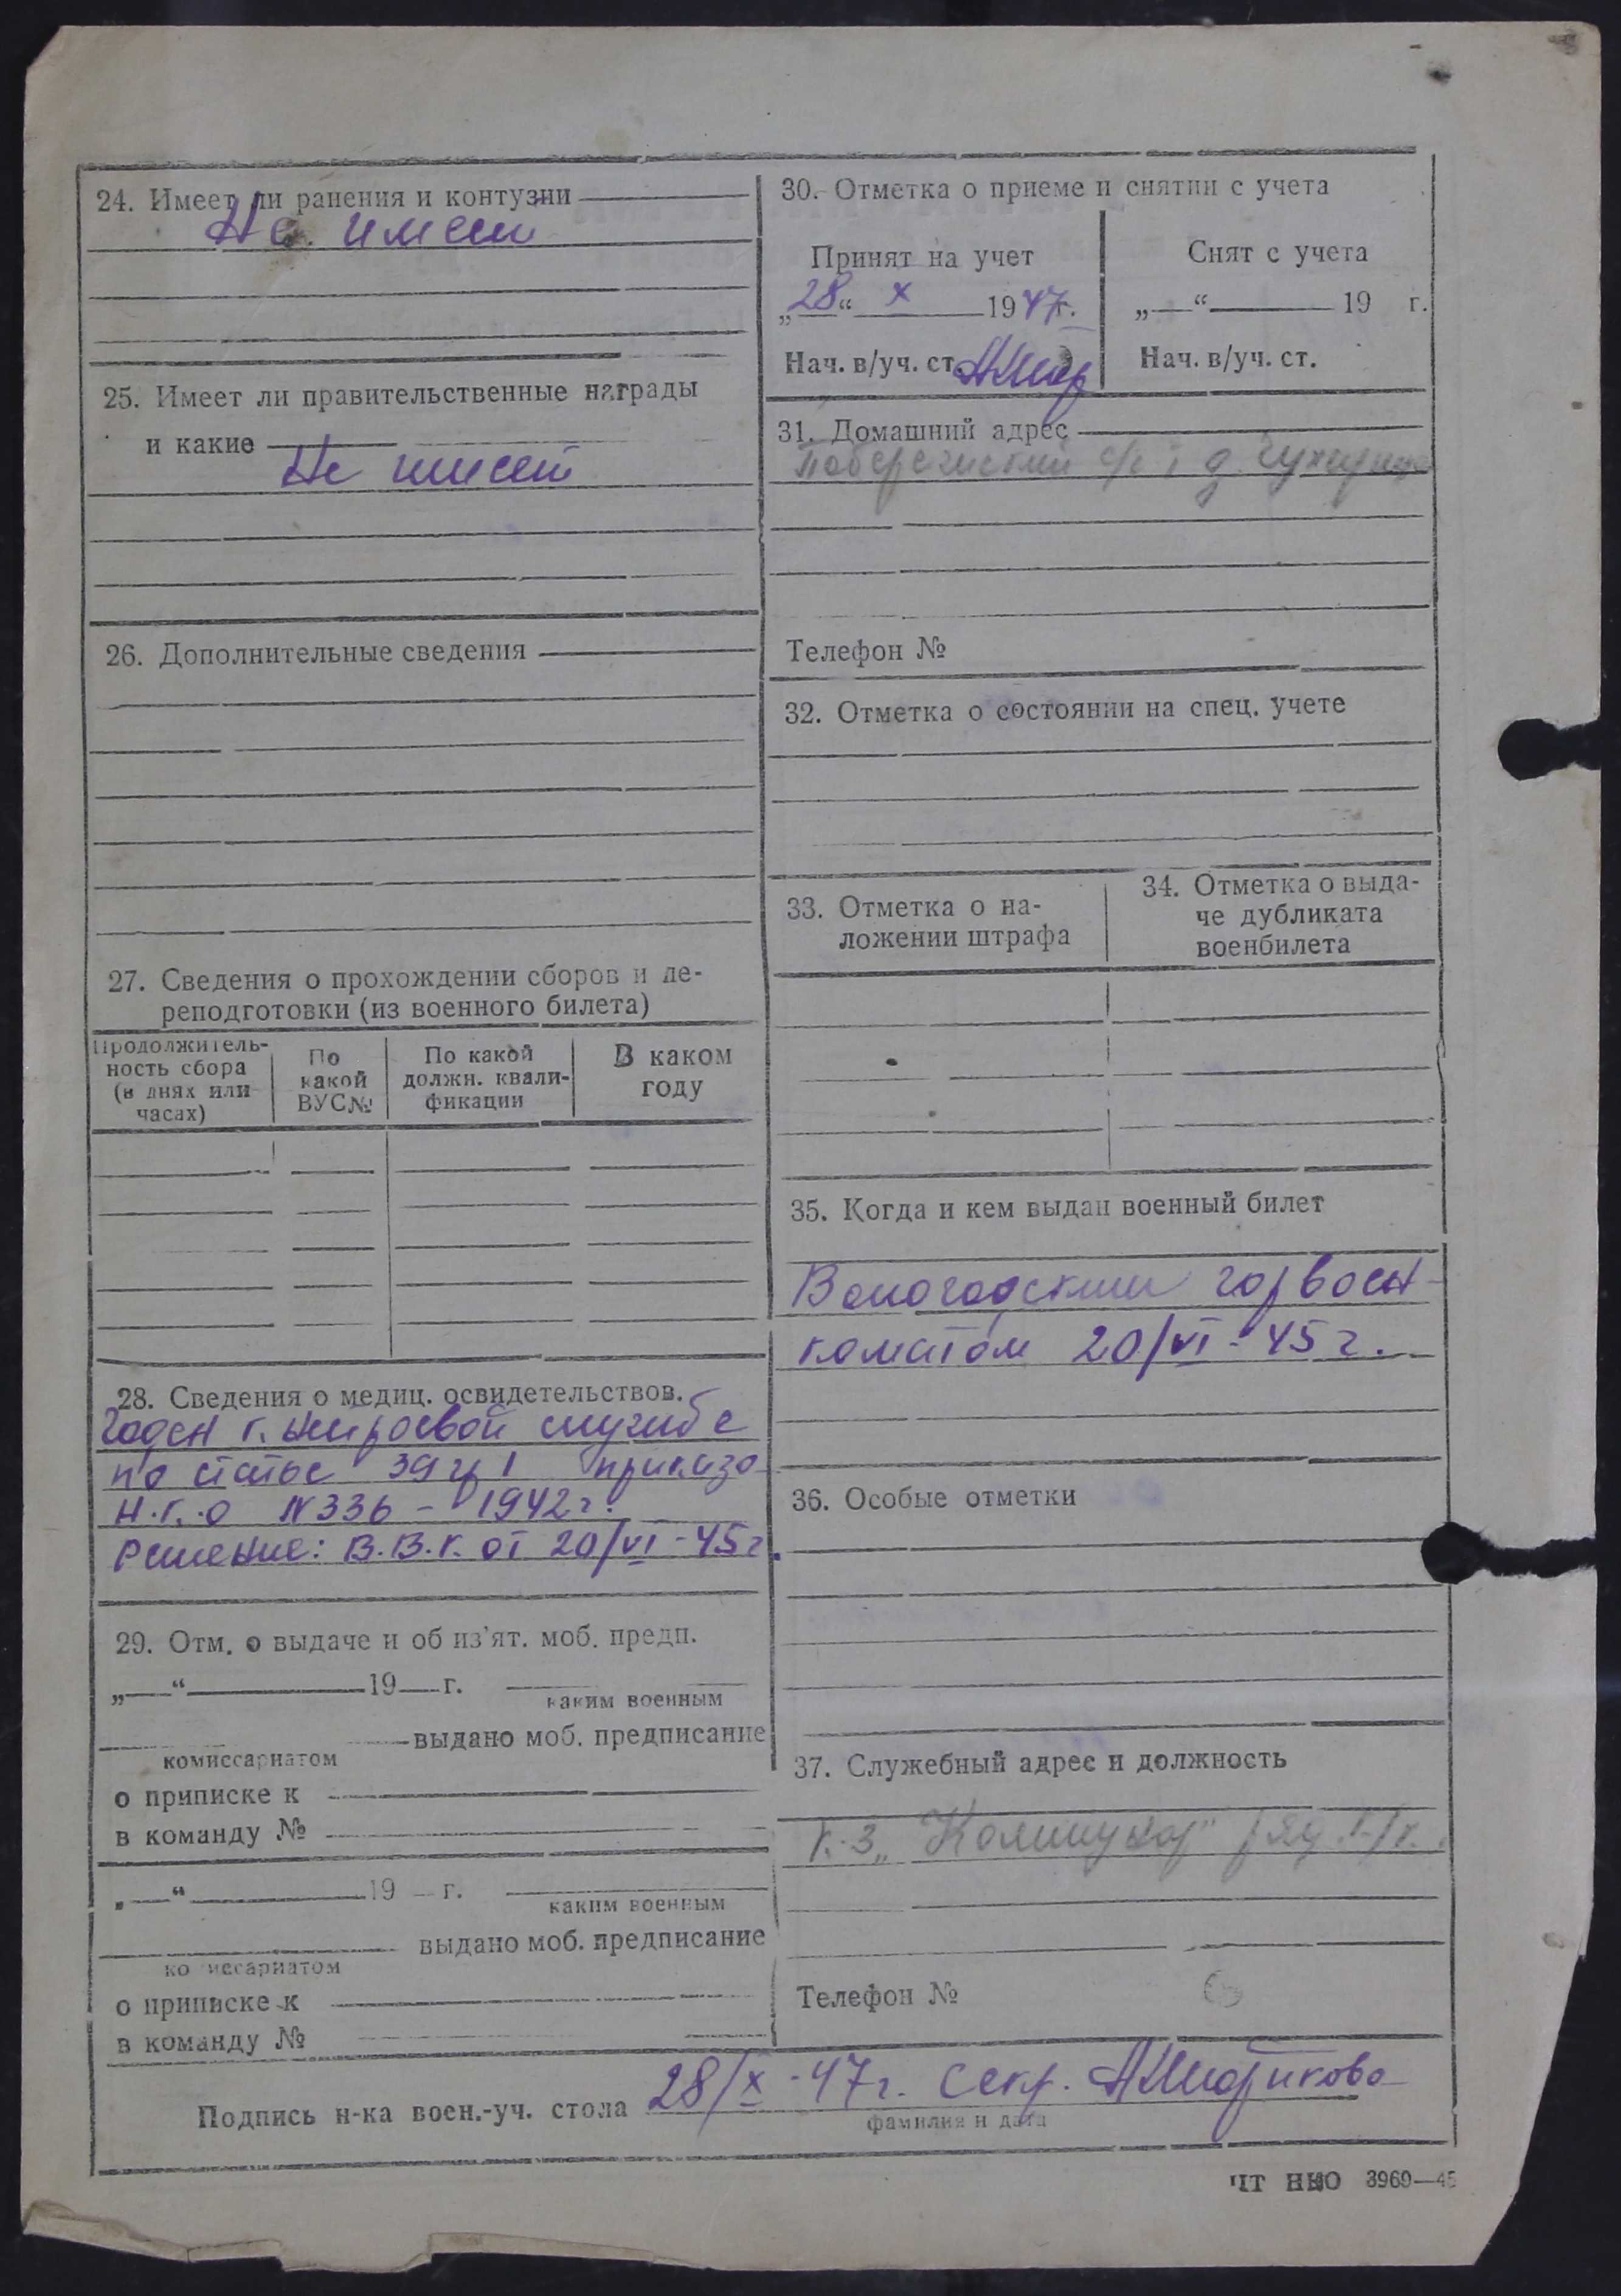 24. Имеет ли ранения и контузии
Не имеет
25. Имеет ли правительственные награды
и какие
Не имеет
26. Дополнительные сведения
27. Сведения о прохождении сборов и пе-
реподготовки (из военного билета)
Продолжитель-
ность сбора
(в днях или
часах)
По
какой
ВУС№
По какой
должн. квали-
фикации
В каком
году
28. Сведения о медиц. освидетельствов.
Годен к нестроевой службе
по статье 39 гр I приказа
Н.К.О N 336 - 1942 г.
Решение: В.В.К. от 20/VI-45 г.
29. Отм. о выдаче и об из'ят. моб. предп.
„ “ 19 г.
каким военным
выдано моб. предписание
комиссариатом
о приписке к
в команду №
„ “ 19 г.
каким военным
выдано моб. предписание
комиссариатом
о приписке к
в команду №
30. Отметка о приеме и снятии с учета
Принят на учет
„28“ X 1947г.
Нач. в/уч. ст.
Снят с учета
„ “ 19 г.
Нач. в/уч. ст.
31. Домашний адрес
с/с д.
Телефон №
32. Отметка о состоянии на спец. учете
33. Отметка о на-
ложении штрафа
34. Отметка о выда-
че дубликата
военбилета
35. Когда и кем выдан военный билет
Вологодским горвоен-
коматом 20/VI-45 г.
36. Особые отметки
37. Служебный адрес и должность
к-з
Телефон №
Подпись н-ка воен.-уч. стола 28/X-47г. секр.
фамилия и дата
ЦТ НКО 3969—45